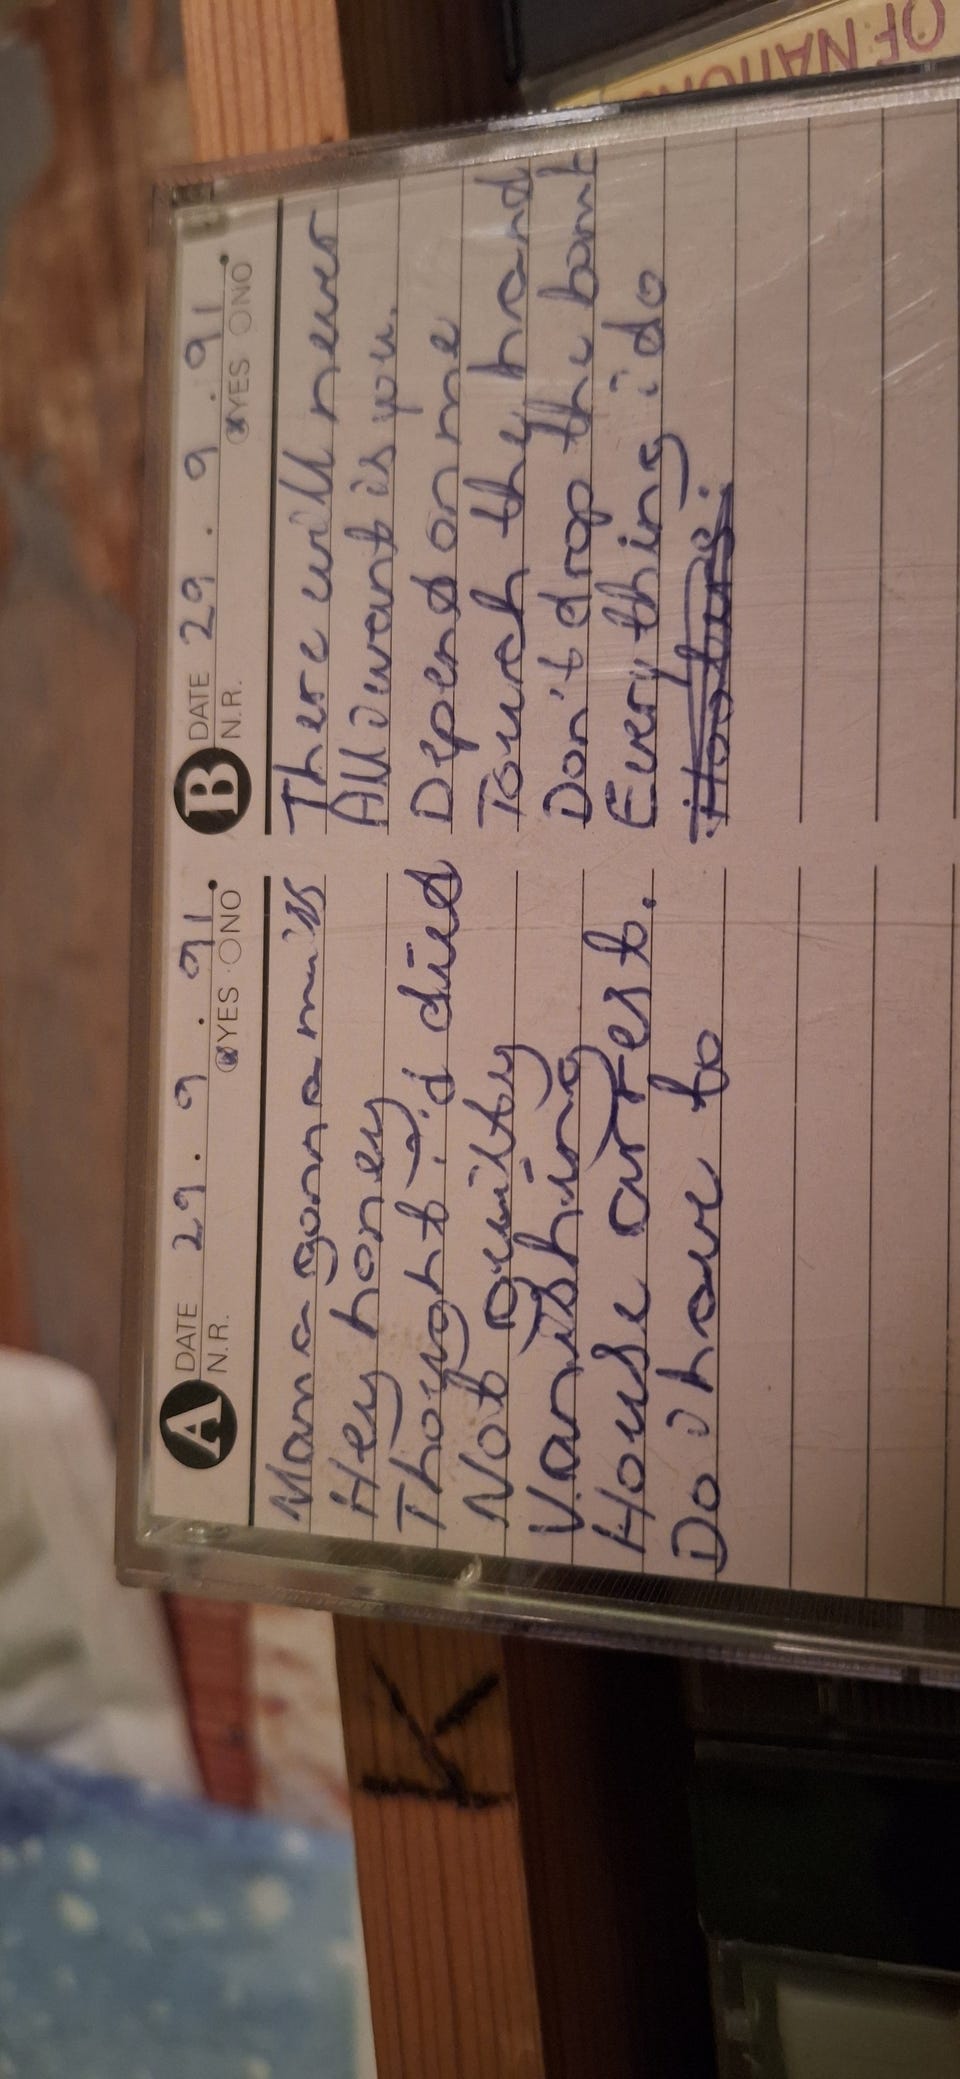 OF NATION
A DATE 29.9.91
N.R. YES NO
Mama gonna miss
Hey honey
Thought i'd died
Not guilty
Vanishing
House arrest.
Do i have to
B DATE 29.9.91
N.R. YES NO
There will never
All i want is you.
Depend on me
Touch the hand
Don't drop the bomb
Everything i do
K